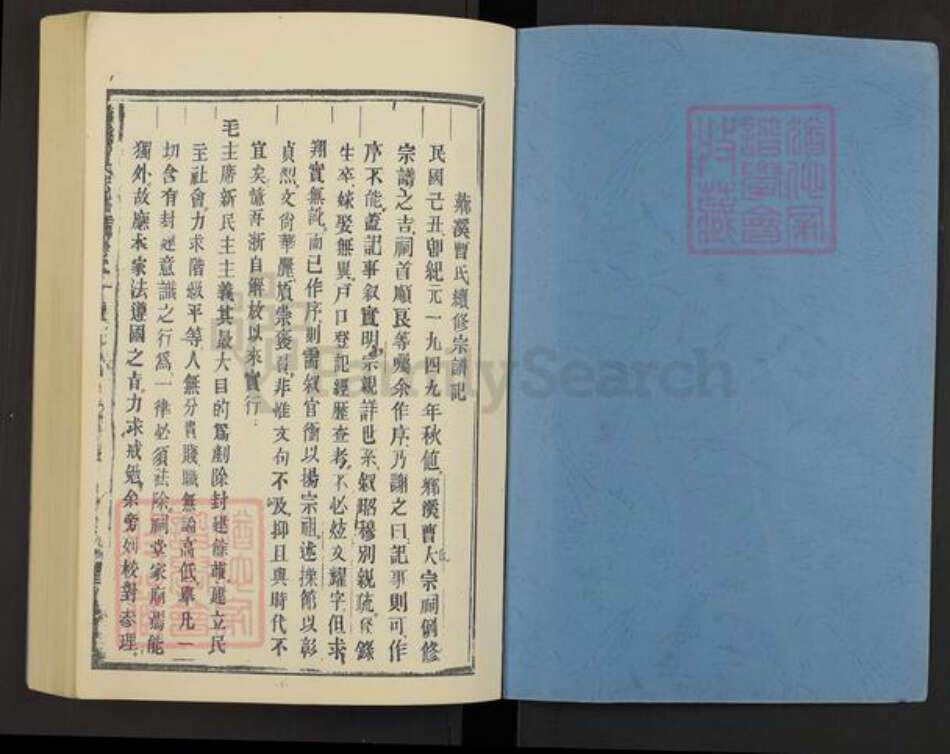 鄴溪曹氏續修宗譜記
民國己丑卽紀元一九四九年秋値鄴溪曹大宗祠倒修
宗譜之吉祠首順良等囑余作序乃謝之曰記事則可作
序不能蓋記事叙實明宗親詳世系叙昭穆別親疏登錄
生卒嫁娶無異戸口登記經歷查考不必炫文耀字但求
翔實無訛而已作序則需叙官衡以揚宗祖述操節以彰
貞烈文尙華麗頌崇褒貶非惟文句不及抑且與時代不
宜矣憶吾浙自解放以來實行
毛主席新民主主義其最大目的爲剷除封建餘孽建立民
主社會力求階級平等人無分貴賤職無論高低舉凡一
切含有封建意識之行爲一律必須祛除祠堂家廟焉能
獨外故廳本家法遵國之肯力求戒勉余旁列校對參理
FamilySearch